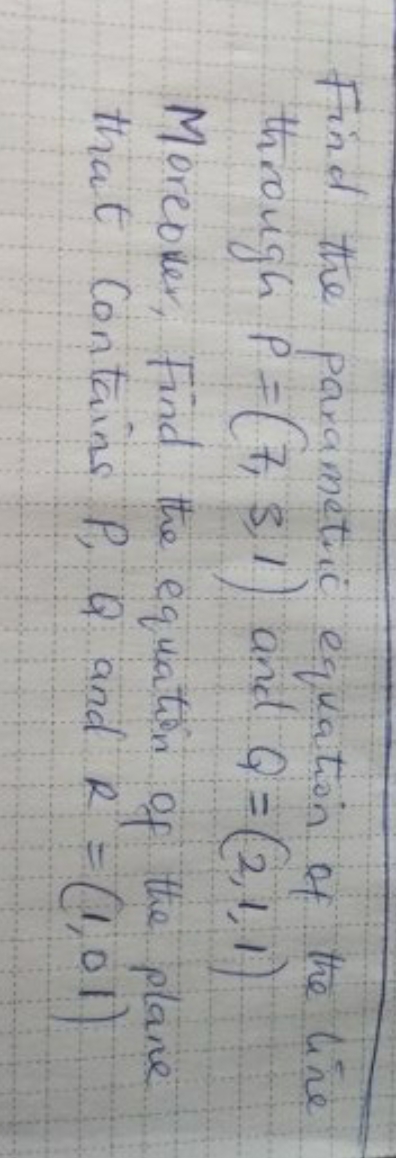 Find the parametric equation of the line
through P = (7, 3, 1) and Q = (2, 1, 1)
Moreover, Find the equation of the plane
that Contains P, Q and R = (1, 0 1)